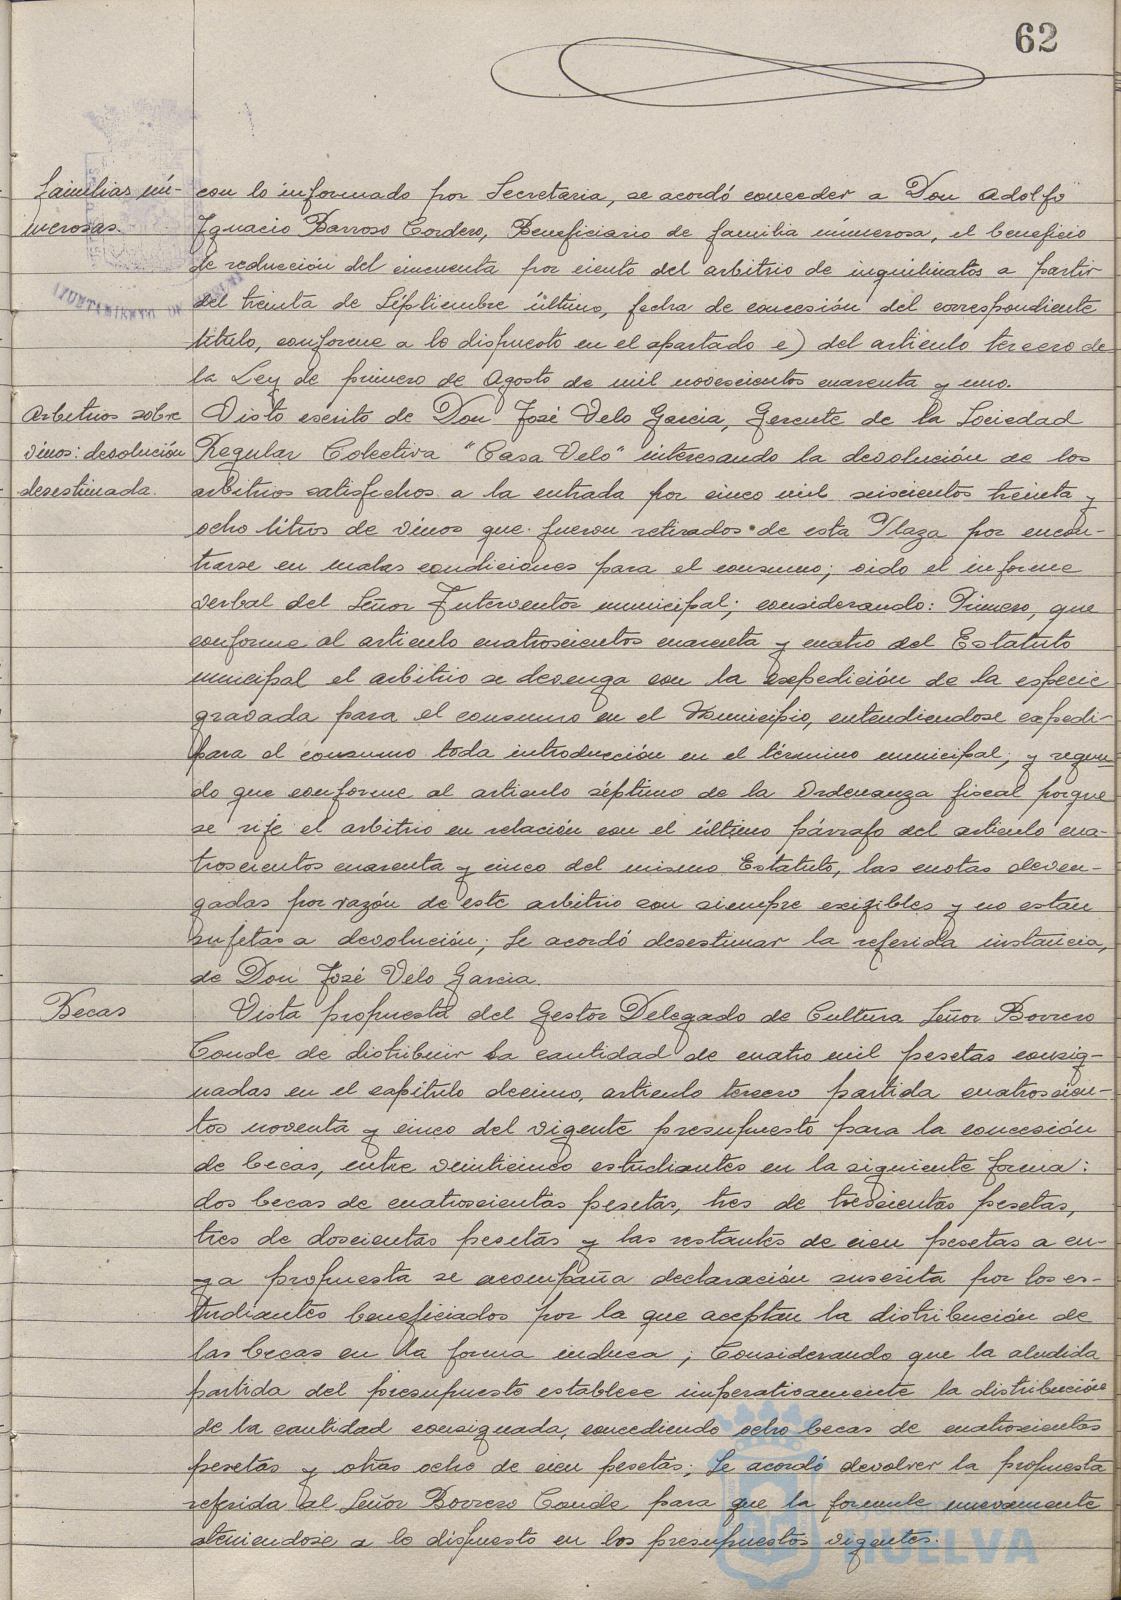 62
familias nú-
merosas.
con lo informado por Secretaria, se acordó conceder a Don Adolfo
Ignacio Barroso Cordero, Beneficiario de familia númerosa, el beneficio
de reducción del cincuenta por ciento del arbitrio de inquilinatos a partir
del treinta de Séptiembre último, fecha de concesión del correspondiente
titulo, conforme a lo dispuesto en el apartado e) del articulo tercero de
la Ley de primero de Agosto de mil novescientos cuarenta y uno.
Arbitrios sobre
vinos: devolución
desestimada.
Visto escrito de Don José Velo Garcia, Gerente de la Sociedad
Regular Colectiva "Casa Velo" interesando la devolución de los
arbitrios satisfechos a la entrada por cinco mil seiscientos treinta y
ocho litros de vinos que fueron retirados de esta Plaza por encon-
trarse en malas condiciones para el consumo; oido el informe
verbal del Señor Interventor municipal; considerando: Primero, que
conforme al articulo cuatroscientos cuarenta y cuatro del Estatuto
municipal el arbitrio se devenga con la expedición de la especie
gravada para el consumo en el Municipio, entendiendose expedi-
para el consumo toda introducción en el término municipal; y segun-
do que conforme al articulo séptimo de la Ordenanza fiscal porque
se rije el arbitrio en relación con el último párrafo del articulo cua-
troscientos cuarenta y cinco del mismo Estatuto, las cuotas deven-
gadas por razón de este arbitrio son siempre exigibles y no estan
sujetas a devolución; Se acordó desestimar la referida instancia,
de Don José Velo Garcia.
Becas
Vista propuesta del Gestor Delegado de Cultura Señor Borrero
Conde de distribuir la cantidad de cuatro mil pesetas consig-
nadas en el capitulo decimo, articulo tercero partida cuatroscien-
tos noventa y cinco del vigente presupuesto para la concesión
de becas, entre veinticinco estudiantes en la siguiente forma:
dos becas de cuatroscientas pesetas, tres de trescientas pesetas,
tres de doscientas pesetas y las restantes de cien pesetas a cu-
ya propuesta se acompaña declaración suscrita por los es-
tudiantes beneficiados por la que aceptan la distribución de
las becas en la forma induca; Considerando que la aludida
partida del presupuesto establece imperativamente la distribución
de la cantidad consignada, concediendo ocho becas de cuatroscientas
pesetas y otras ocho de cien pesetas; Se acordó devolver la propuesta
referida al Señor Borrero Conde para que la formule nuevamente
ateniendose a lo dispuesto en los presupuestos vigentes.
AYUNTAMIENTO DE HUELVA
Ayuntamiento de
HUELVA